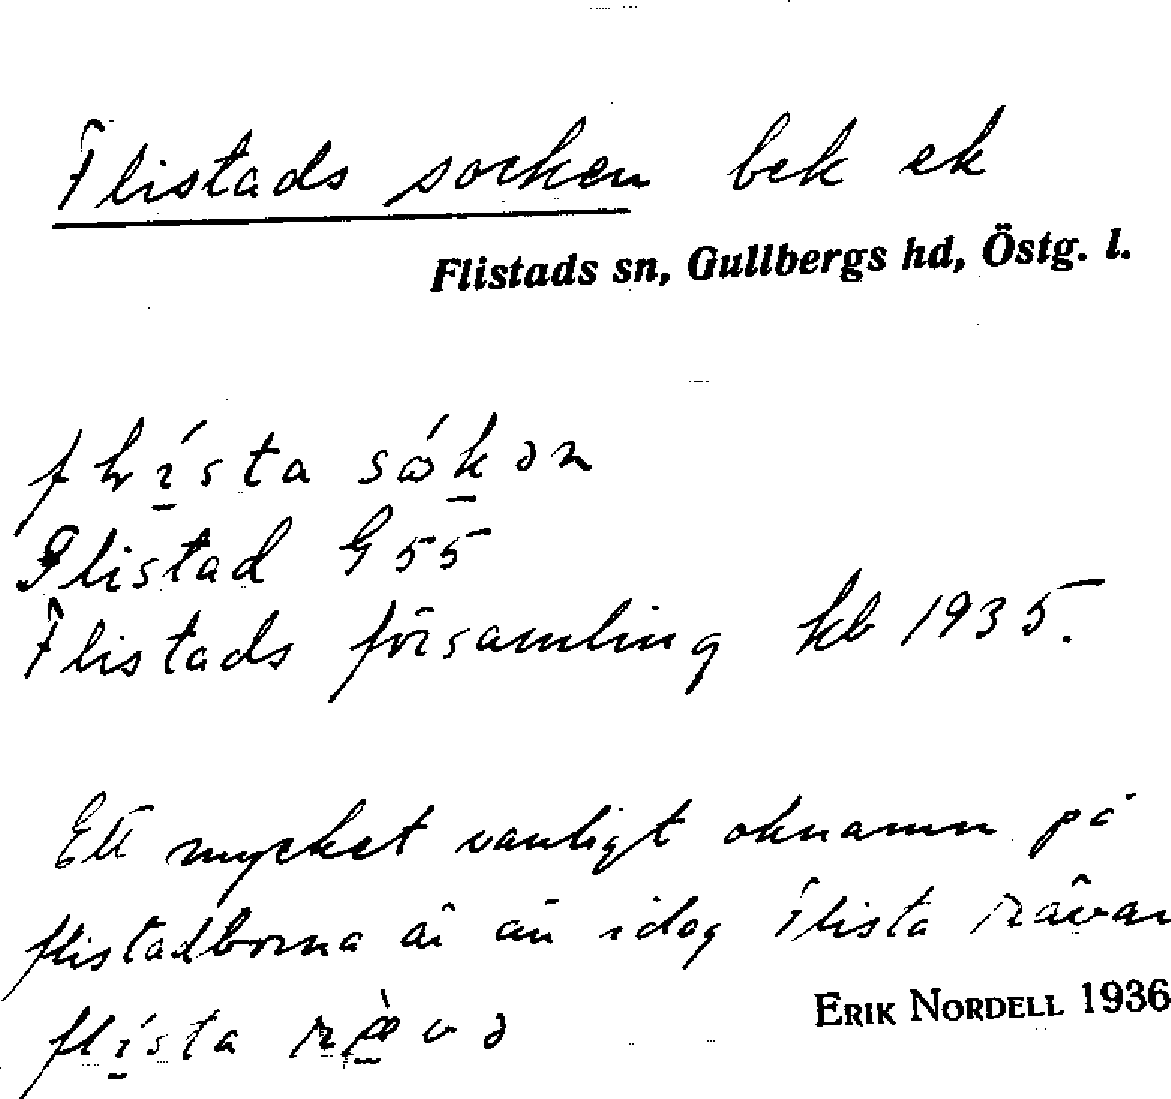 Flistads socken bek ek
Flistads sn, Gullbergs hd, Östg. l.
flista såkən
Flistad G 55
Flistads församling kb 1935.
Ett mycket vanligt öknamn på
flistadborna är än idag Flista rävar
flista rævə
ERIK NORDELL 1936